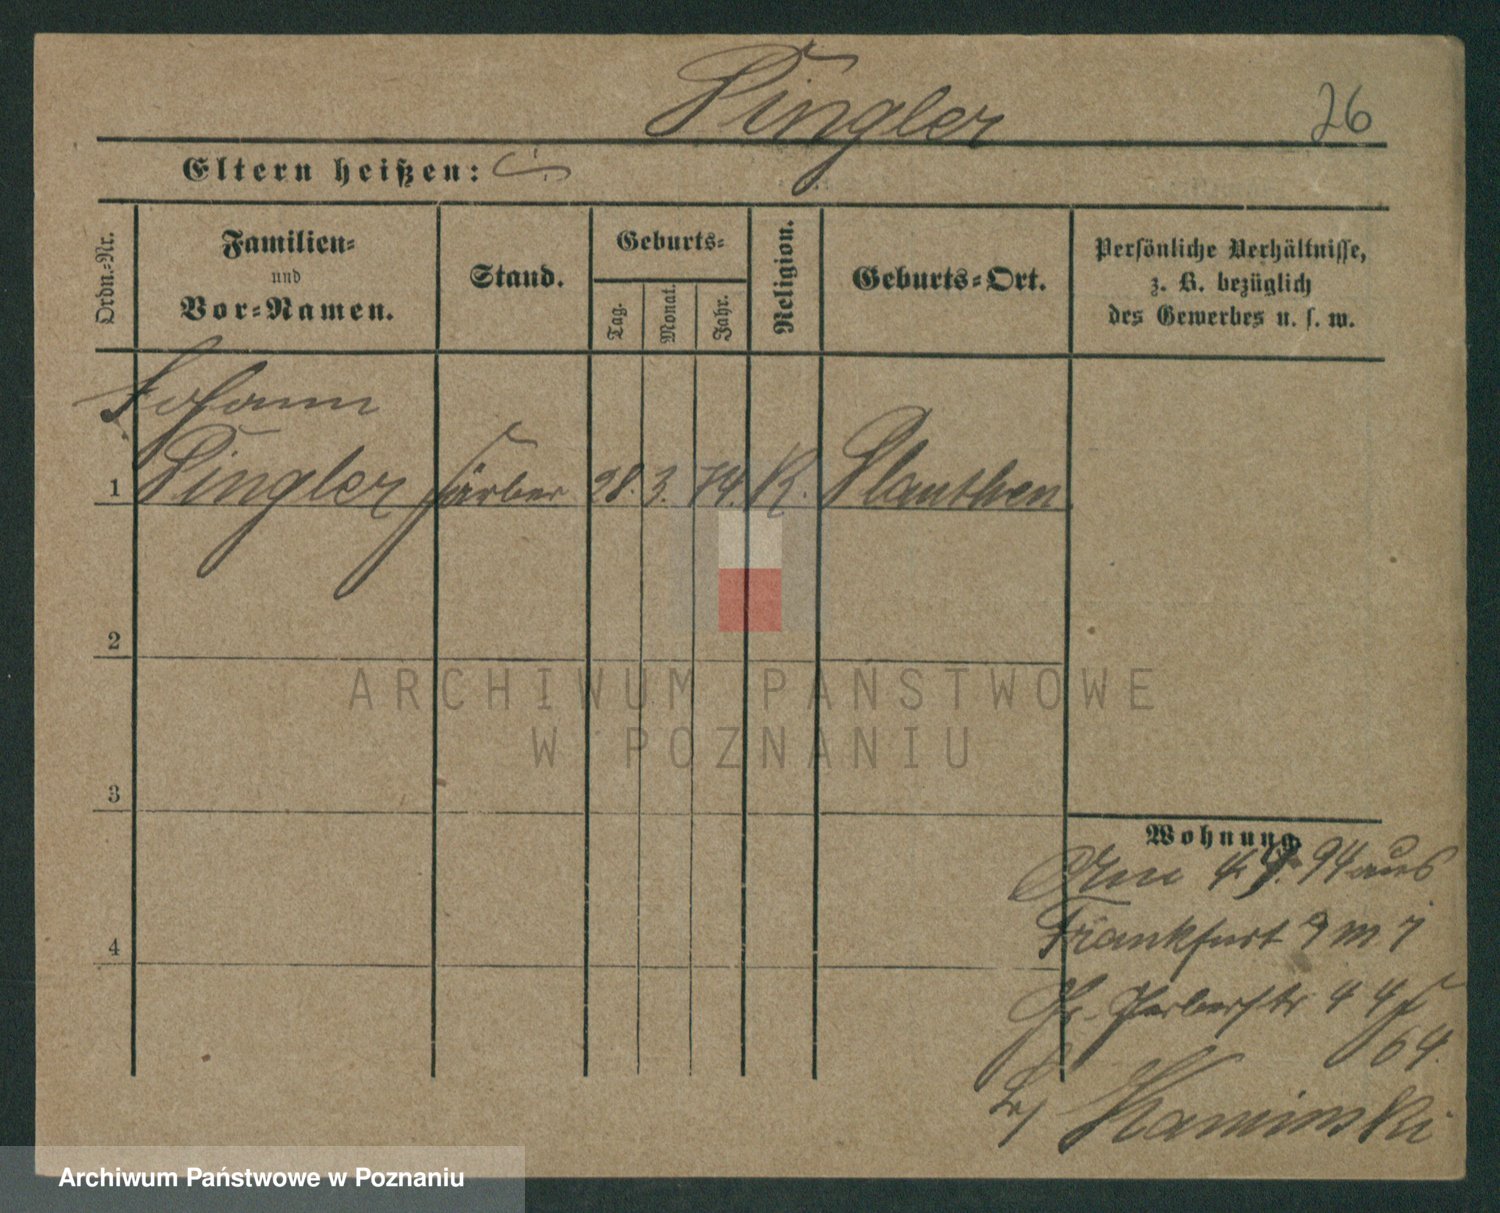 Pingler
26
Eltern heißen:
Ordn.-Nr.
Familien-
und
Vor-Namen.
Stand.
Geburts-
Tag.
Monat.
Jahr.
Religion.
Geburts-Ort.
Persönliche Verhältnisse,
z. B. bezüglich
des Gewerbes u. s. w.
Johann
1 Pingler Färber 28. 3. 74. K. Plauthen
2
3
4
Wohnung
94 aus
Frankfurt
Gr. Gerberstr 4
Kaminski
ARCHIWUM PAŃSTWOWE
W POZNANIU
Archiwum Państwowe w Poznaniu